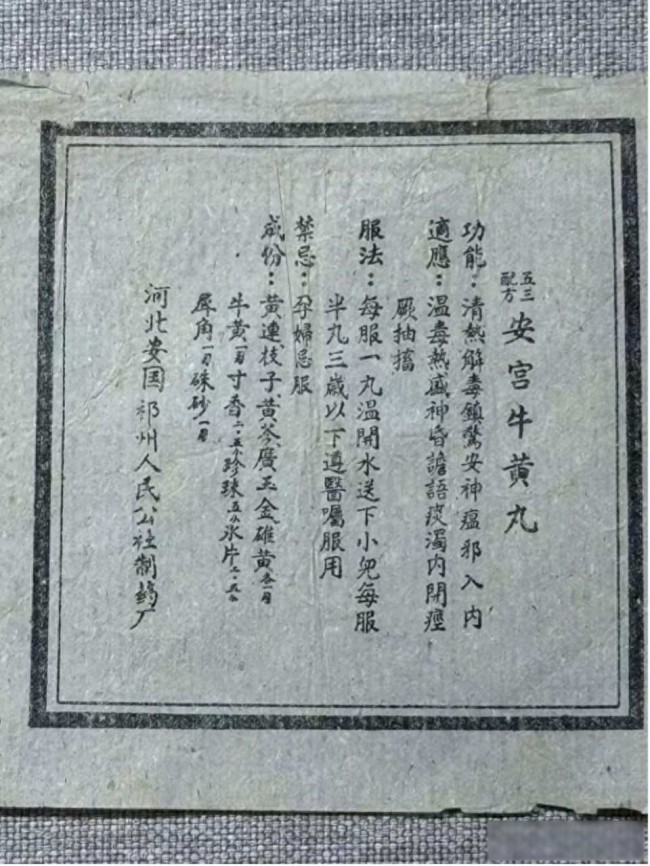 五三配方 安宮牛黄丸
功能：清熱解毒鎮驚安神瘟邪入内
適應：温毒熱盛神昏譫語痰濁内閉痙
厥抽搐
服法：每服一丸温開水送下小兒每服
半丸三歲以下遵醫囑服用
禁忌：孕婦忌服
成份：黄連枝子黄芩廣玉金雄黄各一刄
牛黄一刄寸香二·五分珍珠五分氷片二·五分
犀角一刄硃砂一刄
河北安国祁州人民公社制药厂